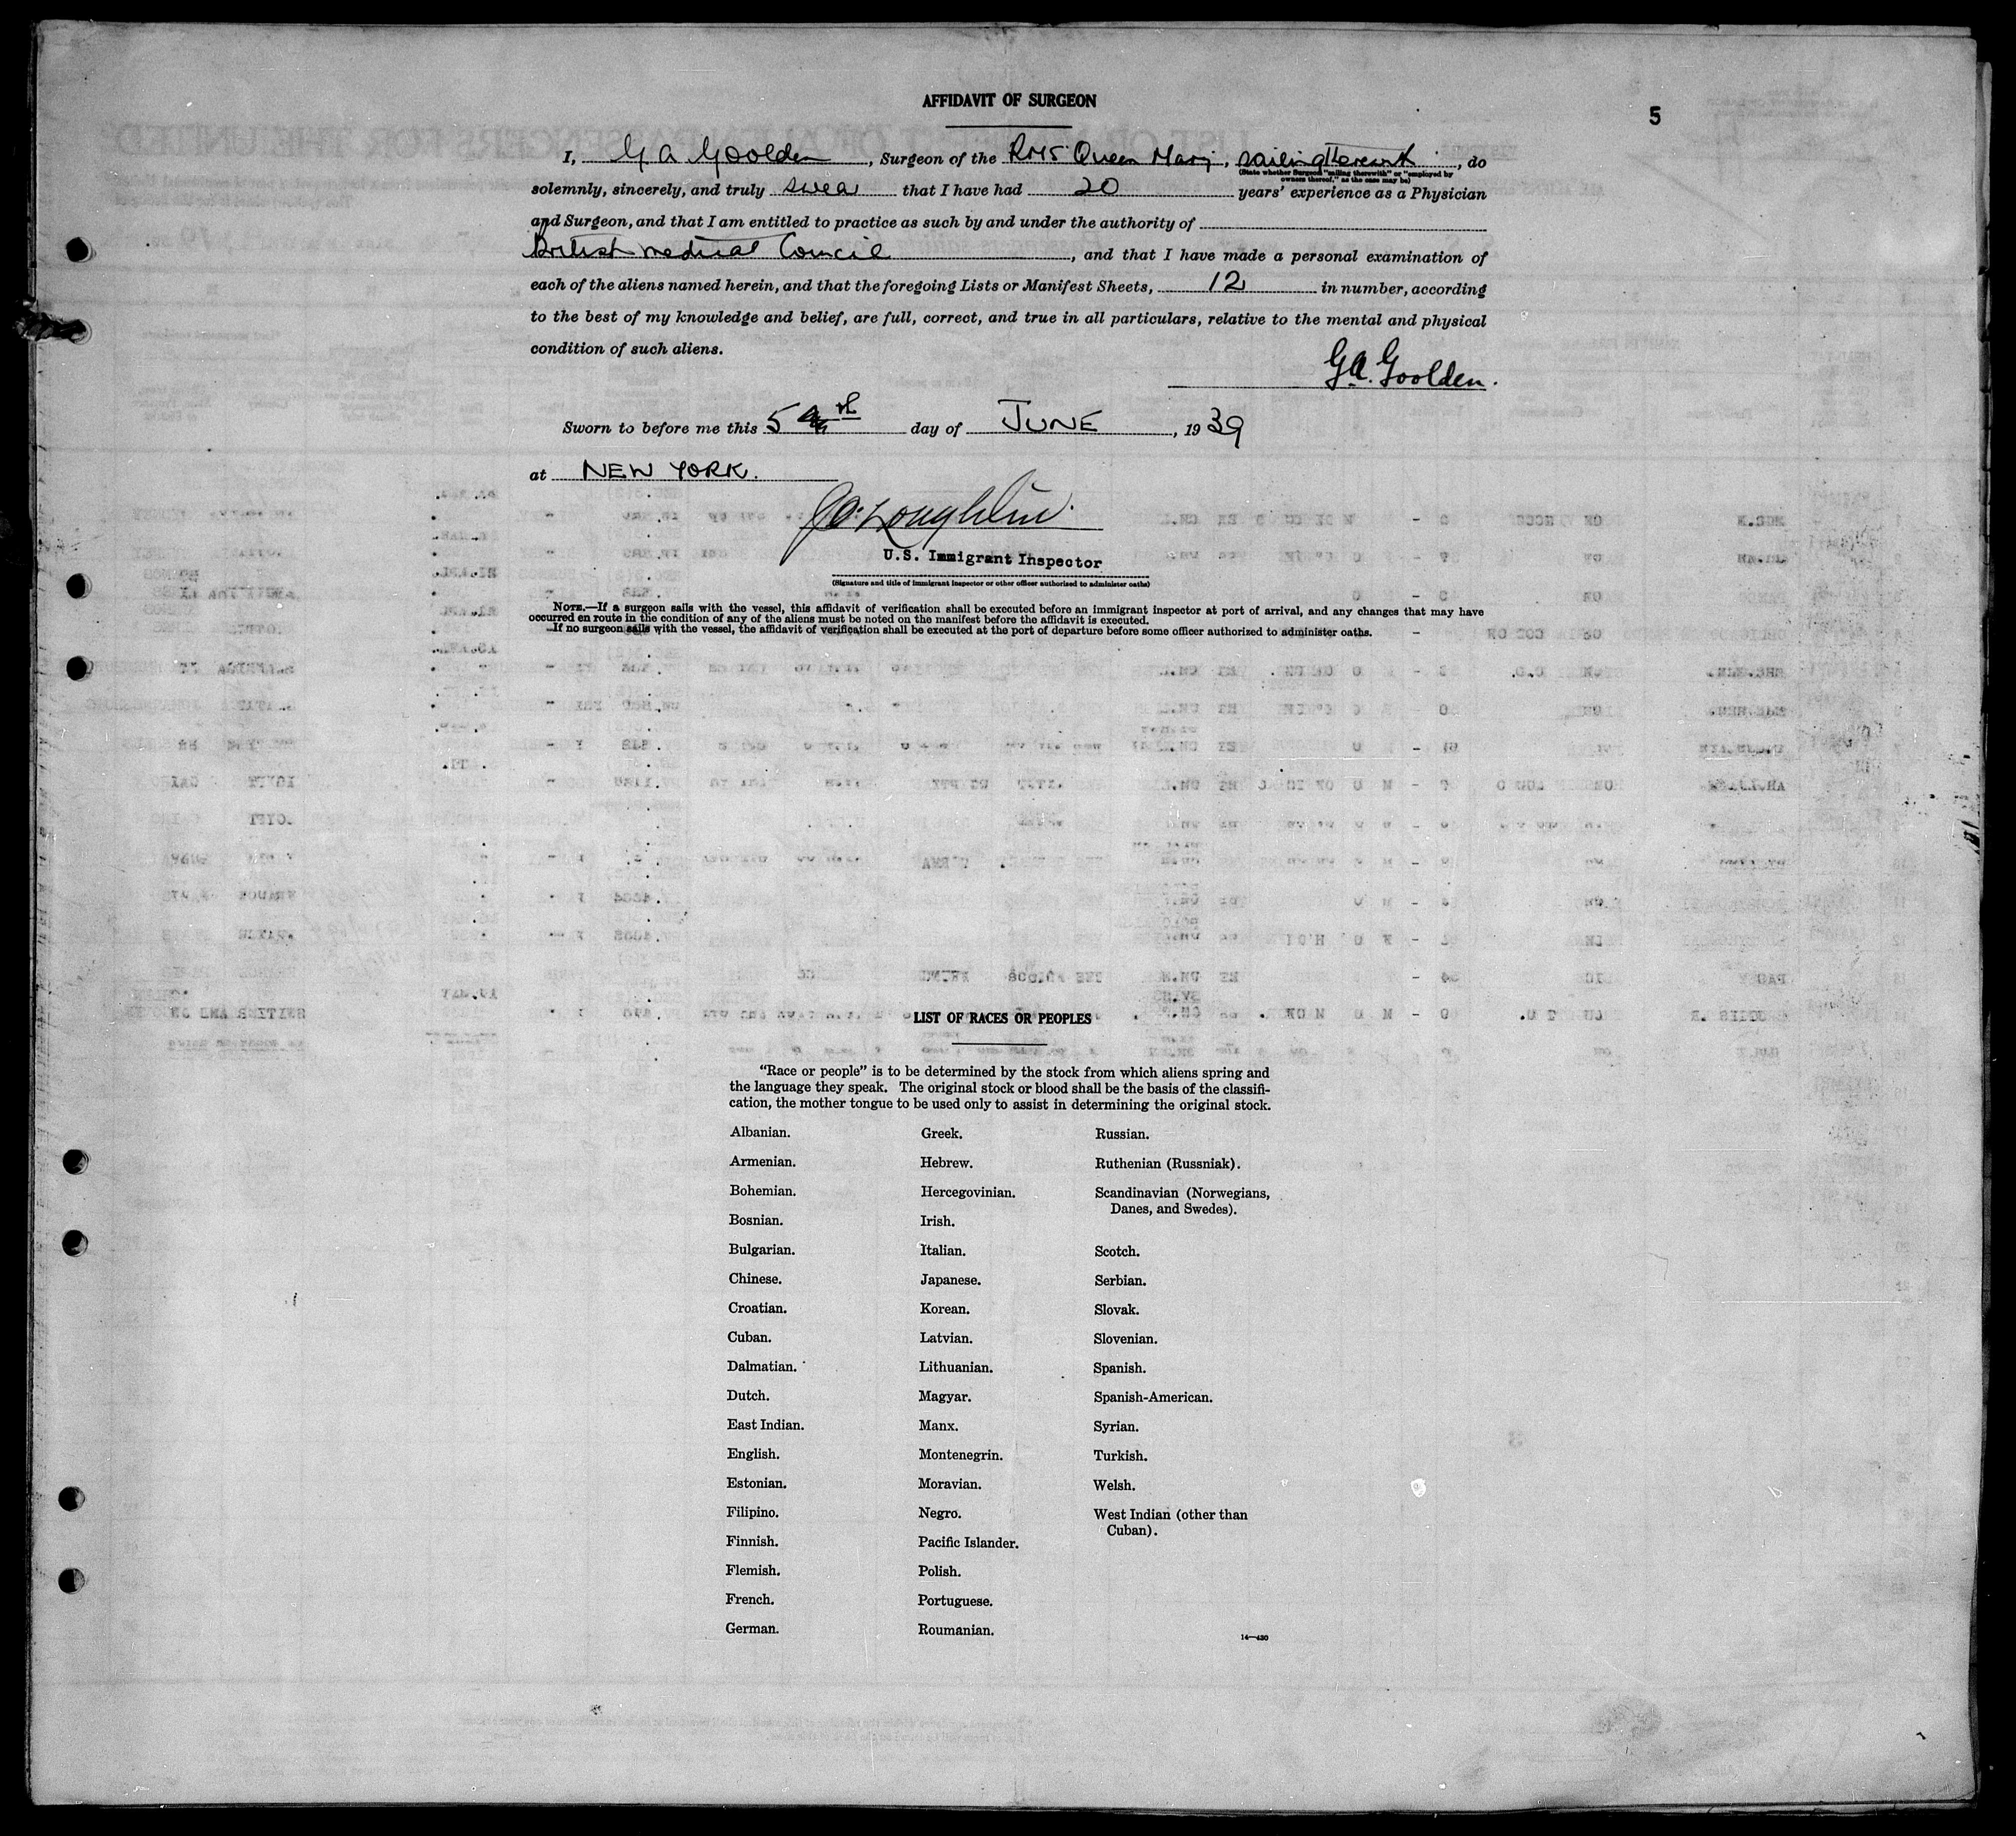 AFFIDAVIT OF SURGEON
5
I, G A Goolden, Surgeon of the RMS Queen Mary, sailing therewith, do
(State whether Surgeon "sailing therewith" or "employed by
owners thereof," as the case may be)
solemnly, sincerely, and truly swear that I have had 20 years' experience as a Physician
and Surgeon, and that I am entitled to practice as such by and under the authority of
British medical Council, and that I have made a personal examination of
each of the aliens named herein, and that the foregoing Lists or Manifest Sheets, 12 in number, according
to the best of my knowledge and belief, are full, correct, and true in all particulars, relative to the mental and physical
condition of such aliens.
G.A. Goolden.
Sworn to before me this 5 th day of JUNE, 1939
at NEW YORK.
U.S. Immigrant Inspector
(Signature and title of immigrant inspector or other officer authorized to administer oaths)
NOTE.—If a surgeon sails with the vessel, this affidavit of verification shall be executed before an immigrant inspector at port of arrival, and any changes that may have
occurred en route in the condition of any of the aliens must be noted on the manifest before the affidavit is executed.
If no surgeon sails with the vessel, the affidavit of verification shall be executed at the port of departure before some officer authorized to administer oaths.
LIST OF RACES OR PEOPLES
"Race or people" is to be determined by the stock from which aliens spring and
the language they speak. The original stock or blood shall be the basis of the classifi-
cation, the mother tongue to be used only to assist in determining the original stock.
Albanian.
Armenian.
Bohemian.
Bosnian.
Bulgarian.
Chinese.
Croatian.
Cuban.
Dalmatian.
Dutch.
East Indian.
English.
Estonian.
Filipino.
Finnish.
Flemish.
French.
German.
Greek.
Hebrew.
Hercegovinian.
Irish.
Italian.
Japanese.
Korean.
Latvian.
Lithuanian.
Magyar.
Manx.
Montenegrin.
Moravian.
Negro.
Pacific Islander.
Polish.
Portuguese.
Roumanian.
Russian.
Ruthenian (Russniak).
Scandinavian (Norwegians,
Danes, and Swedes).
Scotch.
Serbian.
Slovak.
Slovenian.
Spanish.
Spanish-American.
Syrian.
Turkish.
Welsh.
West Indian (other than
Cuban).
14—430